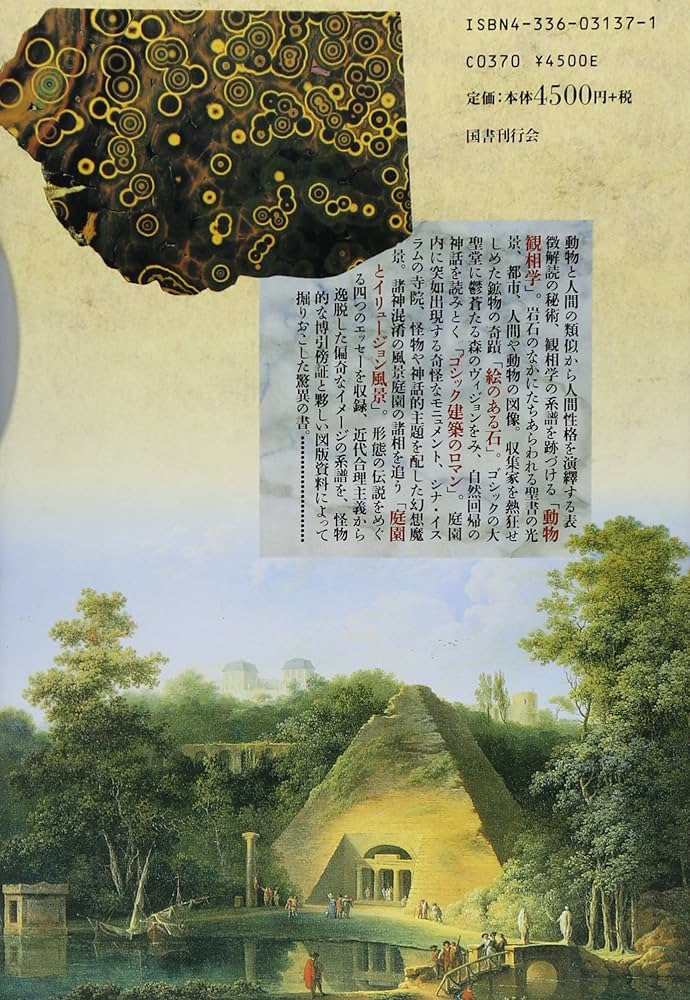 ISBN4-336-03137-1
C0370 ¥4500E
定価:本体4500円+税
国書刊行会
動物と人間の類似から人間性格を演繹する表
徴解読の秘術、観相学の系譜を跡づける「動物
観相学」。岩石のなかにたちあらわれる聖書の光
景、都市、人間や動物の図像。収集家を熱狂せ
しめた鉱物の奇蹟「絵のある石」。ゴシックの大
聖堂に鬱蒼たる森のヴィジョンをみ、自然回帰の
神話を読みとく「ゴシック建築のロマン」。庭園
内に突如出現する奇怪なモニュメント、シナ・イス
ラムの寺院、怪物や神話的主題を配した幻想魔
景。諸神混淆の風景庭園の諸相を追う「庭園
とイリュージョン風景」。形態の伝説をめぐ
る四つのエッセーを収録、近代合理主義から
逸脱した偏奇なイメージの系譜を、怪物
的な博引傍証と夥しい図版資料によって
掘りおこした驚異の書。